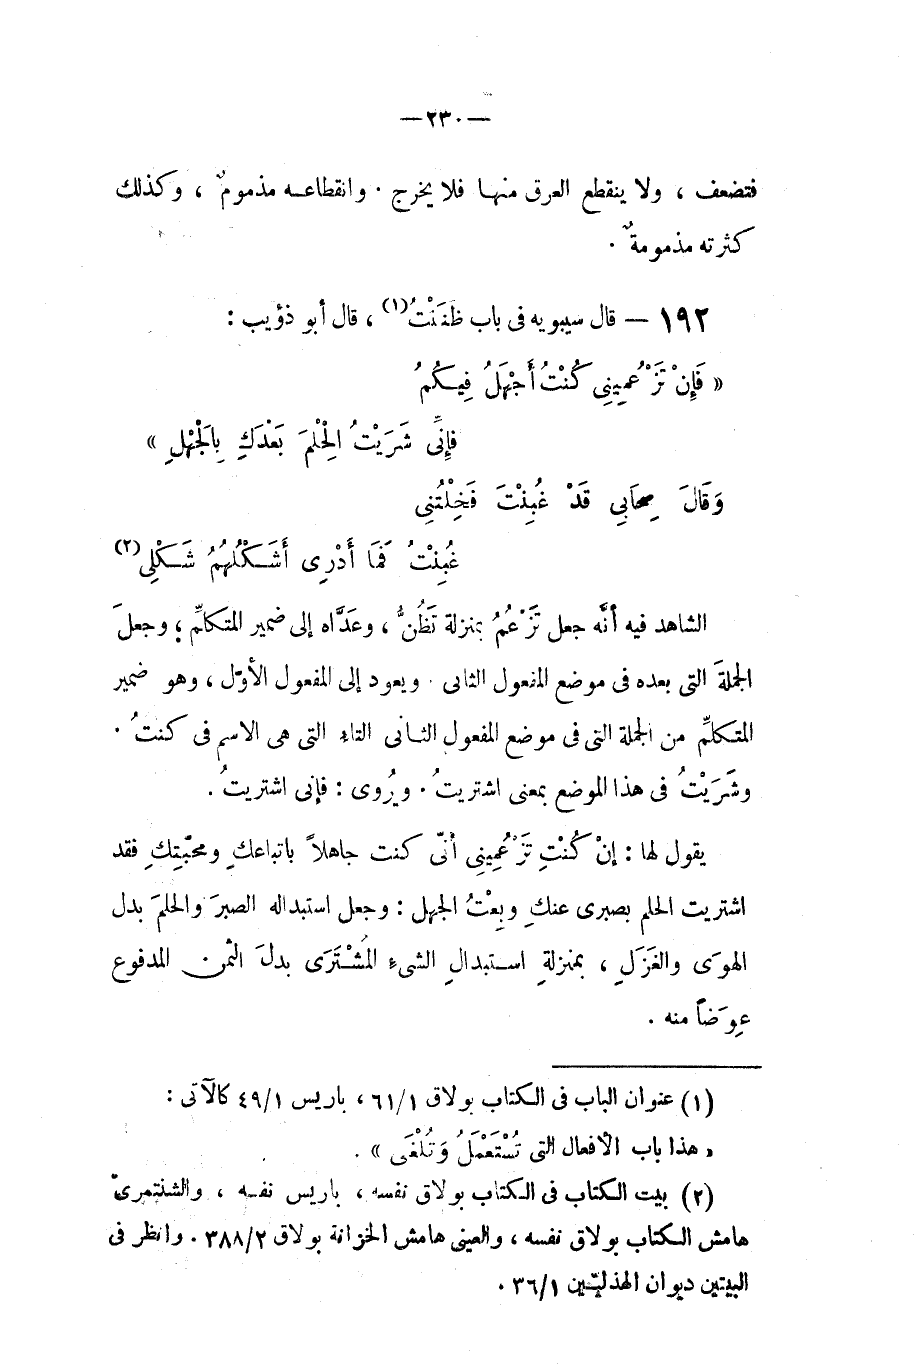 —٢٣٠—
فتضعف ، ولا ينقطع العرق منها فلا يخرج . وانقطاعه مذمومٌ ، وكذلك
كثرته مذمومةٌ .
١٩٢ — قال سيبويه فى باب ظَنَنْتُ(١) ، قال أبو ذؤيب :
« فَإِنْ تَزْعُمِينِى كُنْتُ أَجْهَلُ فِيكُمُ
فإِنِّى شَرَيْتُ الحِلْمَ بَعْدَكِ بِالجَهْلِ »
وَقَالَ صِحَابِى قَدْ غُبِنْتَ فَخِلْتُنِى
غُبِنْتُ فَمَا أَدْرِى أَشَكْلُهُمُ شَكْلِى(٢)
الشاهد فيه أنَّه جعل تَزْعُمُ بمنزلة تَظُنُّ ، وعَدَّاه إلى ضمير المتكلِّم ؛ وجعلَ
الجملةَ التى بعده فى موضع المفعول الثانى . ويعود إلى المفعول الأوّل ، وهو ضمير
المتكلِّم من الجملة التى فى موضع المفعول الثانى التاء التى هى الاسم فى كنتُ .
وشَرَيْتُ فى هذا الموضع بمعنى اشتريتُ . ويُروى : فإنى اشتريتُ .
يقول لها : إنْ كُنْتِ تَزْعُمِينِى أنّى كنت جاهلاً باتباعكِ ومحبّتِكِ فقد
اشتريت الحلم بصبرى عنكِ وبِعْتُ الجهل : وجعل استبداله الصبرَ والحلمَ بدل
الهوَى والغَزَلِ ، بمنزلةِ استبدالِ الشىءِ المُشْتَرَى بدلَ الثمن المدفوع
عِوَضاً منه .
(١) عنوان الباب فى الكتاب بولاق ٦١/١ ، باريس ٤٩/١ كالآتى :
« هذا باب الأفعال التى تُسْتَعْمَلُ وَتُلْغَى » .
(٢) بيت الكتاب فى الكتاب بولاق نفسه ، باريس نفسه ، والشنتمرىّ
هامش الكتاب بولاق نفسه ، والعينى هامش الخزانة بولاق ٣٨٨/٢ . وانظر فى
البيتين ديوان الهذليّين ٣٦/١ .